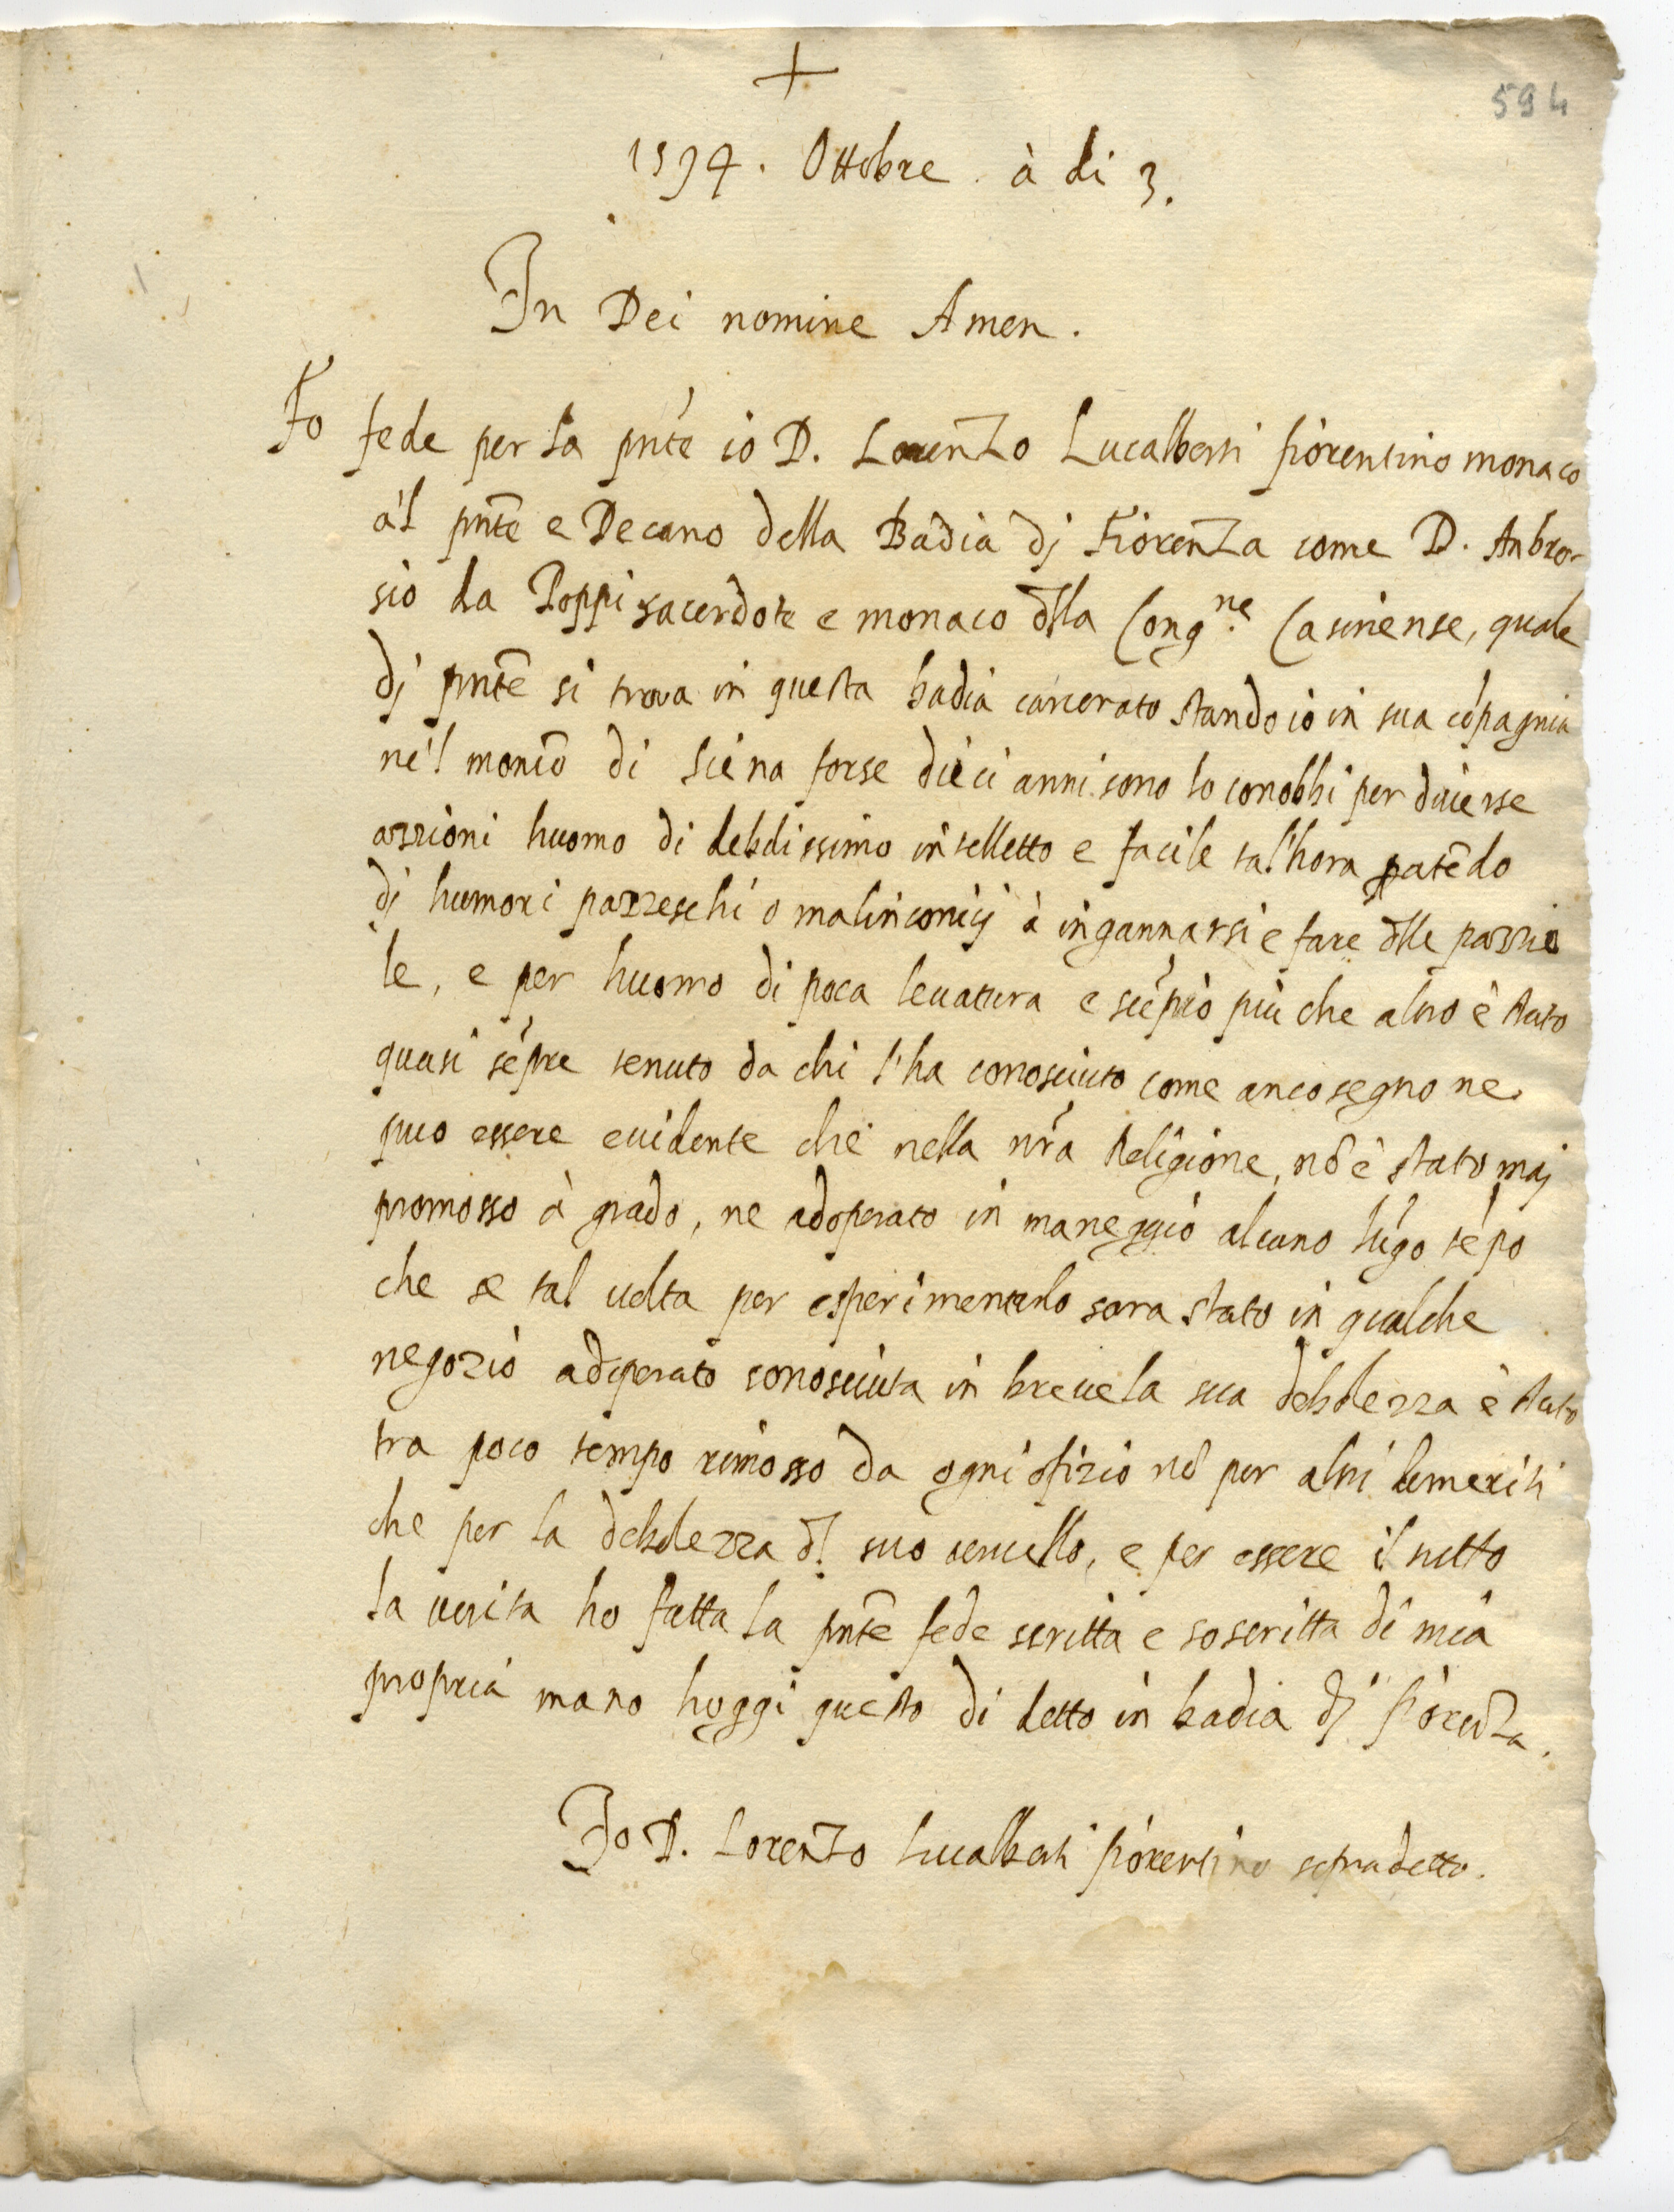 +
594
1594. Ottobre à di 3.
In Dei nomine Amen.
Fo fede per la pnte io D. Lorenzo Lucalberti fiorentino monaco
a'l pnte e Decano della Badia dj Fiorenza come D. Anbro-
sio da Poppi sacerdote e monaco dlla Congne Casinense, quale
dj pnte si trova in questa badia carcerato stando io in sua cōpagnia
ne'l montō di Siena forse dieci anni sono lo conobbi per diuerse
azzioni huomo di debolissimo intelletto e facile tal'hora patēdo
dj humori pazzeschi o malinconicj à ingannarsi e fare dlle pazzie
le, e per huomo di poca leuatura e scēpio più che altro è stato
quasi sēpre tenuto da chi l'ha conosciuto come anco segno ne
puo essere euidente che nella nrā Religione, nō è stato maj
promosso à grado, ne adoperato in maneggio alcuno lūgo tēpo
che se tal uolta per esperimentarlo sara stato in qualche
negozio adoperato conosciuta in breue la sua debolezza è stato
tra poco tempo rimosso da ogni ofizio nō per altri demeriti
che per la debolezza d'l suo ceruello, e per essere il tutto
la uerita ho fatta la pnte fede scritta e soscritta di mia
propria mano hoggi questo di detto in badia dj fiorēza.
Io D. Lorenzo Lucalberti fiorentino sopradetto.